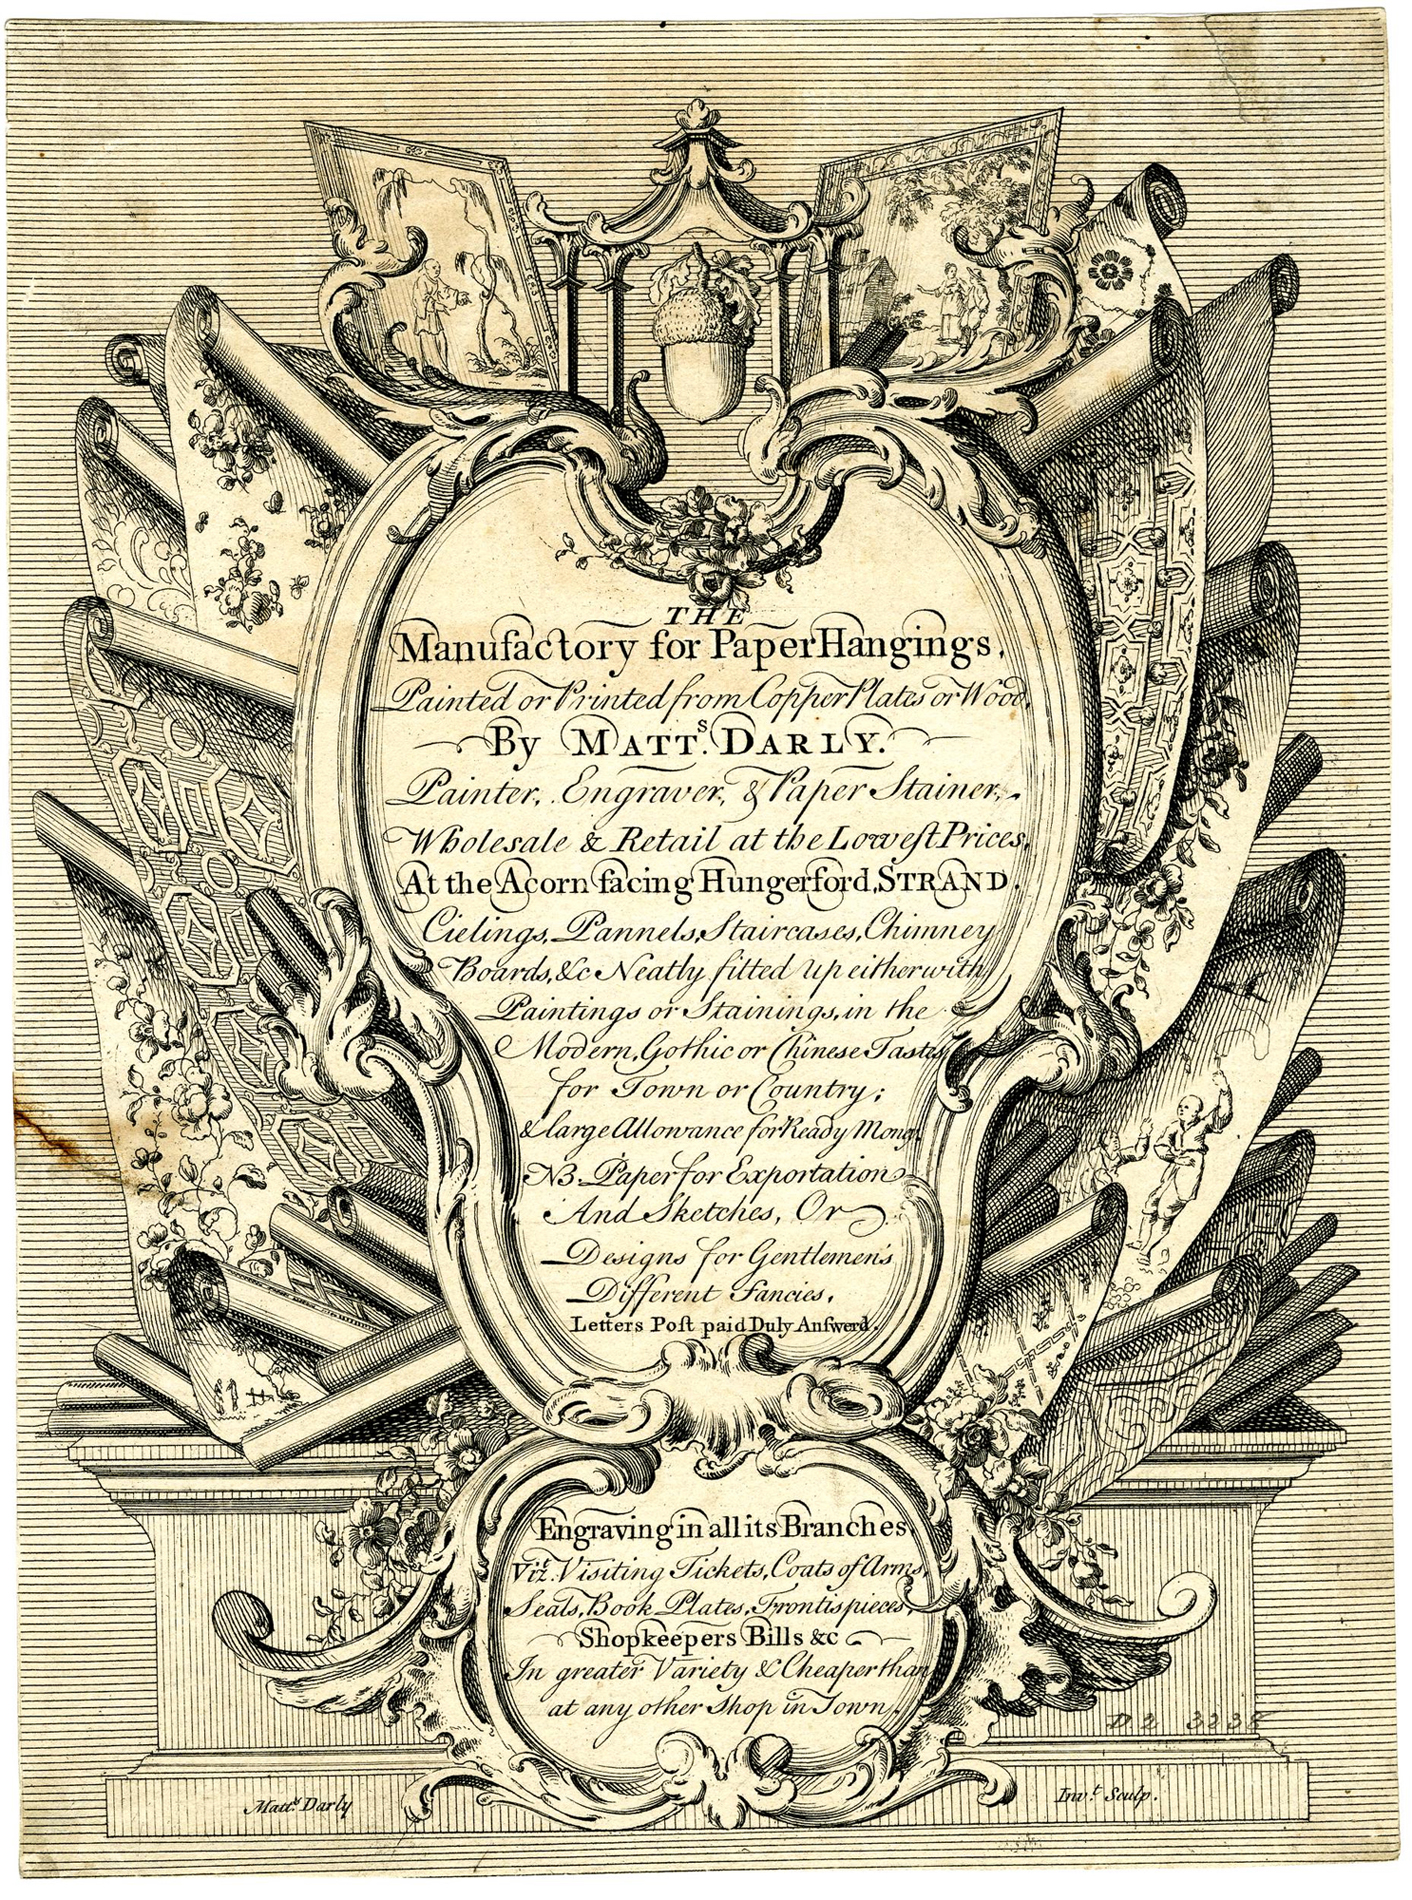 THE
Manufactory for Paper Hangings,
Painted or Printed from Copper Plates or Wood,
By MATTs. DARLY.
Painter, Engraver, & Paper Stainer,
Wholesale & Retail at the Lowest Prices,
At the Acorn facing Hungerford, STRAND.
Cielings, Pannels, Staircases, Chimney
Boards, &c Neatly fitted up either with
Paintings or Stainings, in the
Modern, Gothic or Chinese Tastes,
for Town or Country;
& large Allowance for Ready Money.
NB. Paper for Exportation
And Sketches, Or
Designs for Gentlemen's
Different Fancies.
Letters Post paid Duly Answerd.
Engraving in all its Branches,
Vizt. Visiting Tickets, Coats of Arms,
Seals, Book Plates, Frontispieces,
Shopkeepers Bills &c
In greater Variety & Cheaper than
at any other Shop in Town.
D2 3238
Matts. Darly Invt. Sculp.